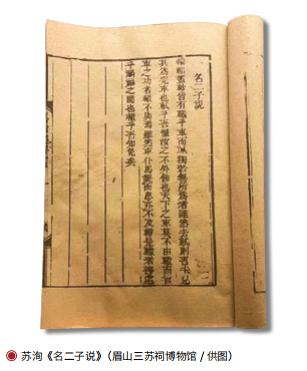 名二子說
輪輻蓋軫皆有職乎車而軾獨若無所為者雖然去軾則吾未見
其為完車也軾乎吾懼汝之不外飾也天下之車莫不由轍而言
車之功者轍不與焉雖然車仆馬斃而患不及轍是轍者禍福之
間轍乎吾知免矣
苏洵《名二子说》（眉山三苏祠博物馆 / 供图）